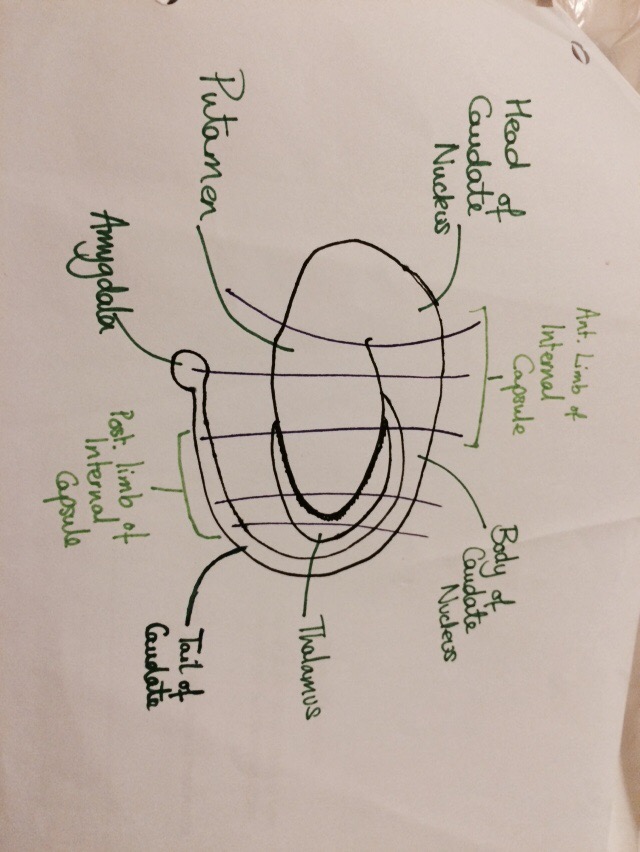 Ant. Limb of
Internal
Capsule
Head of
Caudate
Nucleus
Body of
Caudate
Nucleus
Putamen
Thalamus
Amygdala
Post. limb of
Internal
Capsule
Tail of
Caudate